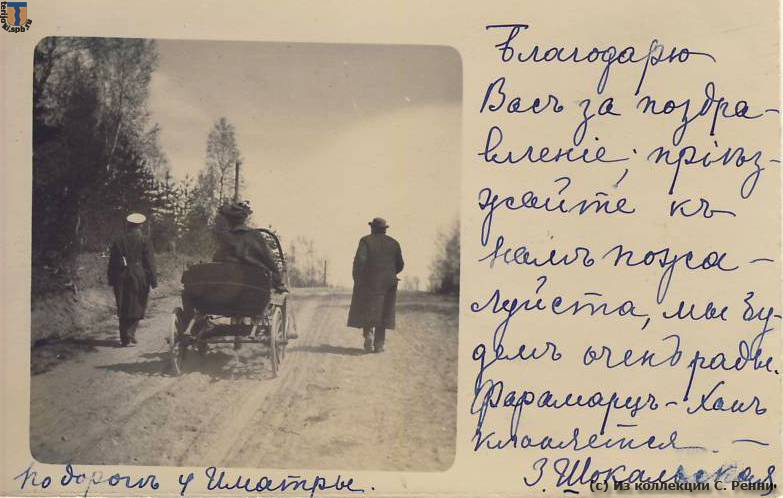 terijoki.spb.ru
Благодарю
Васъ за поздра-
вленіе; пріѣз-
жайте къ
намъ пожа-
луйста, мы бу-
демъ очень рады.
Фарамарцъ-Ханъ
кланяется. —
З. Шокальская.
по дорогѣ у Иматры.
(c) Из коллекции С. Ренни.